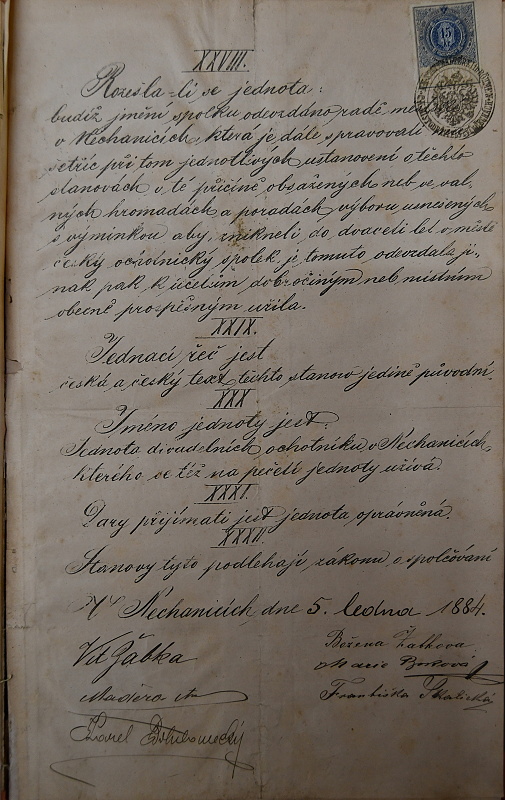 XXVIII.
15
Rozešla-li se jednota:
budiž jmění spolku odevzdáno radě mě
v Nechanicích, která je dále spravovati
šetříc při tom jednotlivých ustanovení v těchto
stanovách v té příčině obsažených neb ve val-
ných hromadách a poradách výboru usnešených
s výminkou aby, vznikneli do dvaceti let v městě
český ochotnický spolek je tomuto odevzdala ji-
nak pak k účelům dobročinným neb místním
obecně prospěšným užila.
XXIX.
Jednací řeč jest
česká a český text těchto stanov jedině původní.
XXX
Jméno jednoty jest:
Jednota divadelních ochotníků v Nechanicích,
kterého se též na pečeti jednoty užívá.
XXXI.
Dary přijímati jest jednota oprávněná.
XXXII.
Stanovy tyto podlehají zákonu o spolčování
V Nechanicích dne 5. ledna 1884.
Vít Žabka
Božena Žabkova
Marie
Maděra
Františka Skalická
Karel